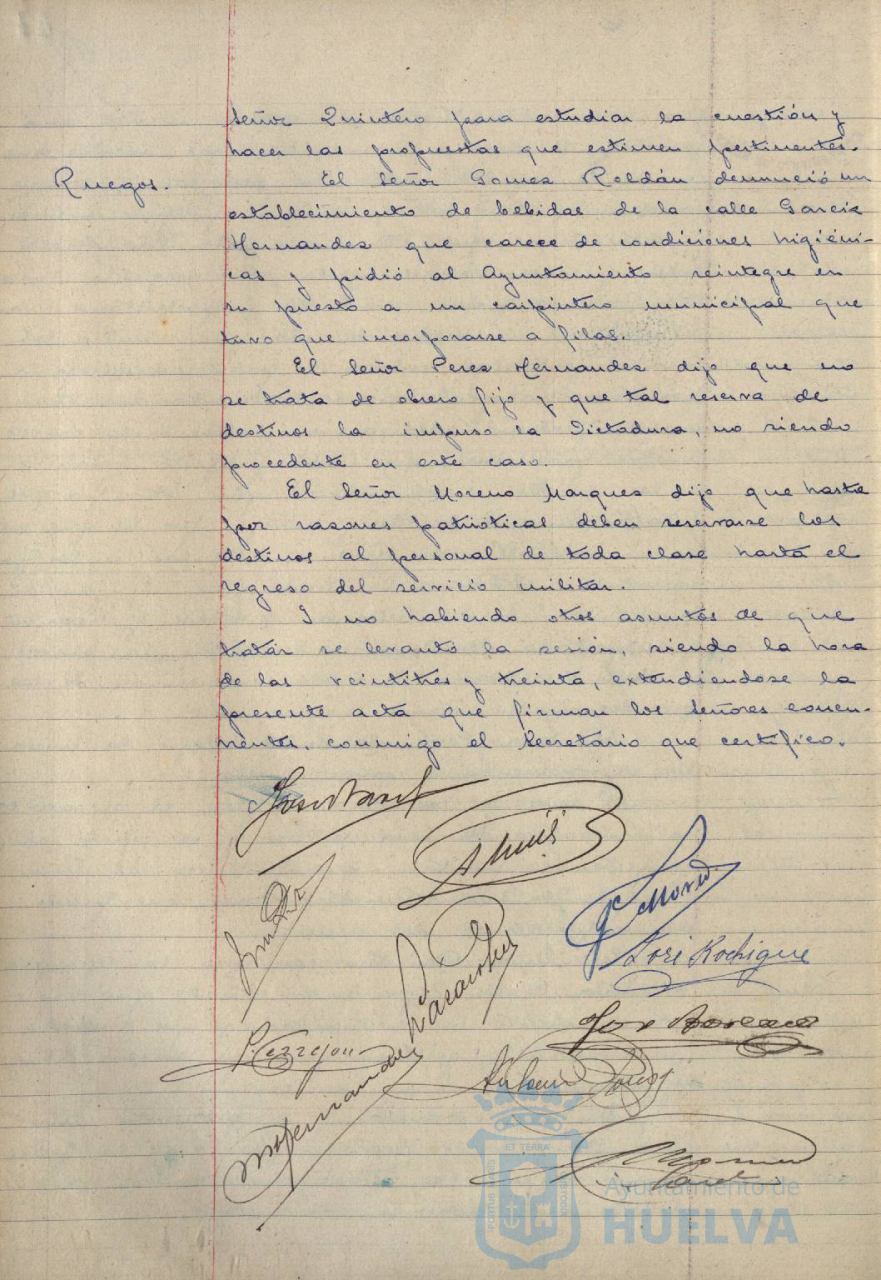 Señor Quintero para estudiar la cuestión y
hacer las propuestas que estimen pertinentes.
Ruegos.
El Señor Gomez Roldán denunció un
establecimiento de bebidas de la calle García
Hernandez que carece de condiciones higiéni-
cas y pidió al Ayuntamiento reintegre en
su puesto a un carpintero municipal que
tuvo que incorporarse a filas.
El Señor Perez Hernandez dijo que no
se trata de obrero fijo y que tal reserva de
destinos la impuso la Dictadura, no siendo
procedente en este caso.
El Señor Moreno Marquez dijo que hasta
por razones patrióticas deben reservarse los
destinos al personal de toda clase hasta el
regreso del servicio militar.
Y no habiendo otros asuntos de que
tratar se levantó la sesión, siendo la hora
de las veintitres y treinta, extendiendose la
presente acta que firman los Señores concu-
rrentes, conmigo el Secretario que certifico.
José Rodrigue
P. Cerrejon
M Hernandez
Antonio
ET TERRA
Ayuntamiento de
HUELVA